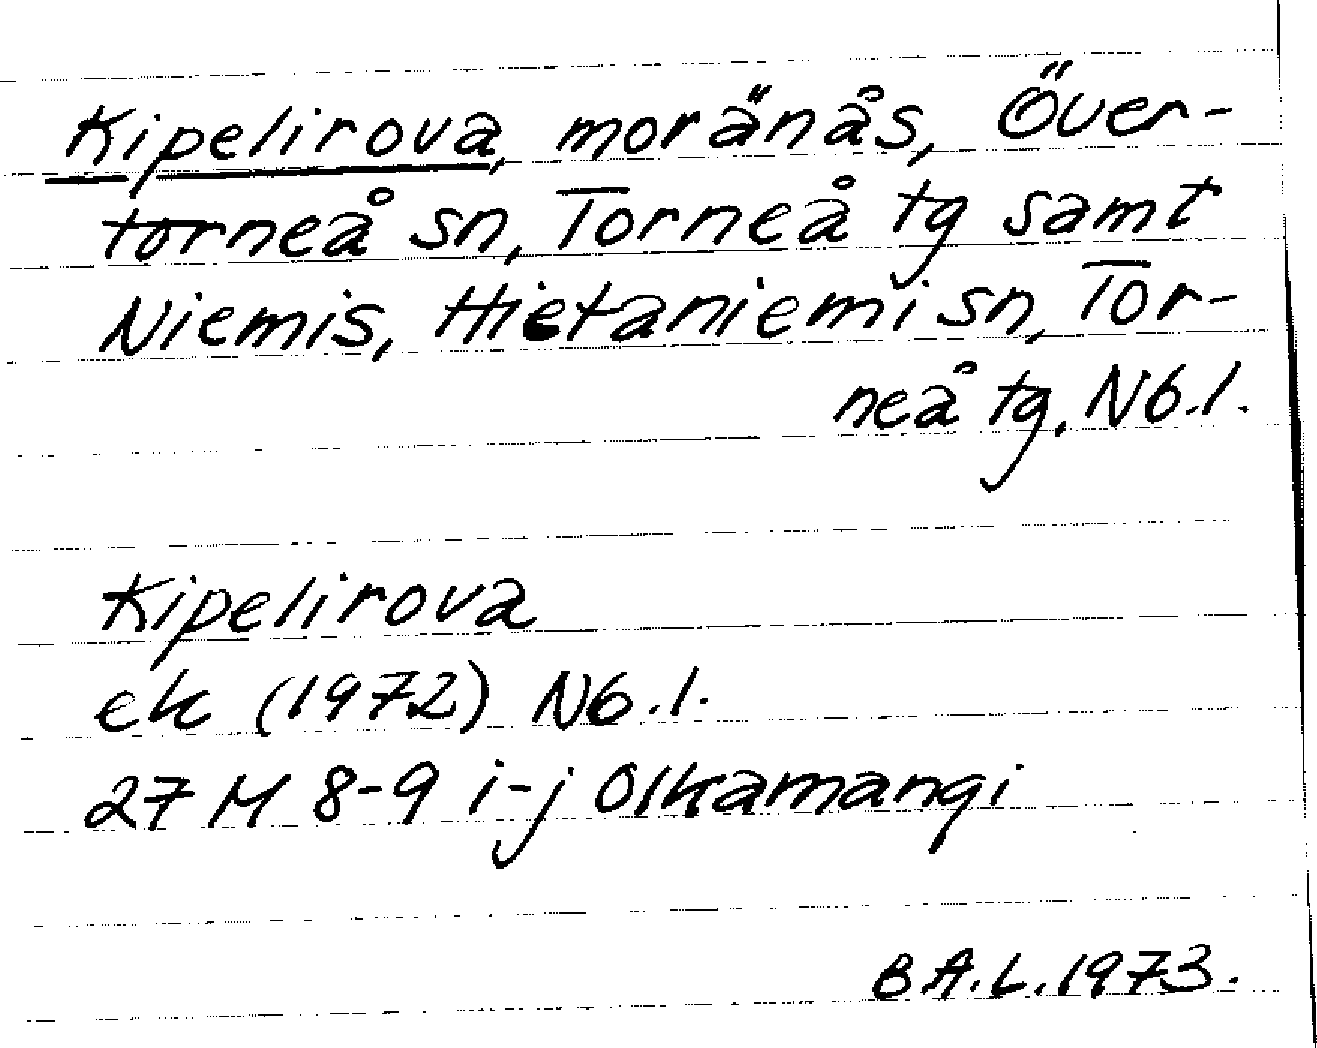 Kipelirova, moränås, Över-
torneå sn, Torneå tg samt
Niemis, Hietaniemi sn, Tor-
neå tg, Nb.l.
Kipelirova
ek (1972) Nb.l.
27 M 8-9 i-j Olkamangi
B A.L. 1973.